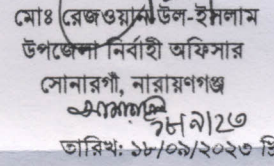 মোঃ রেজওয়ান উল-ইসলাম
উপজেলা নির্বাহী অফিসার
সোনারগাঁ, নারায়ণগঞ্জ
তারিখ: ১৮/০৯/২০২৩